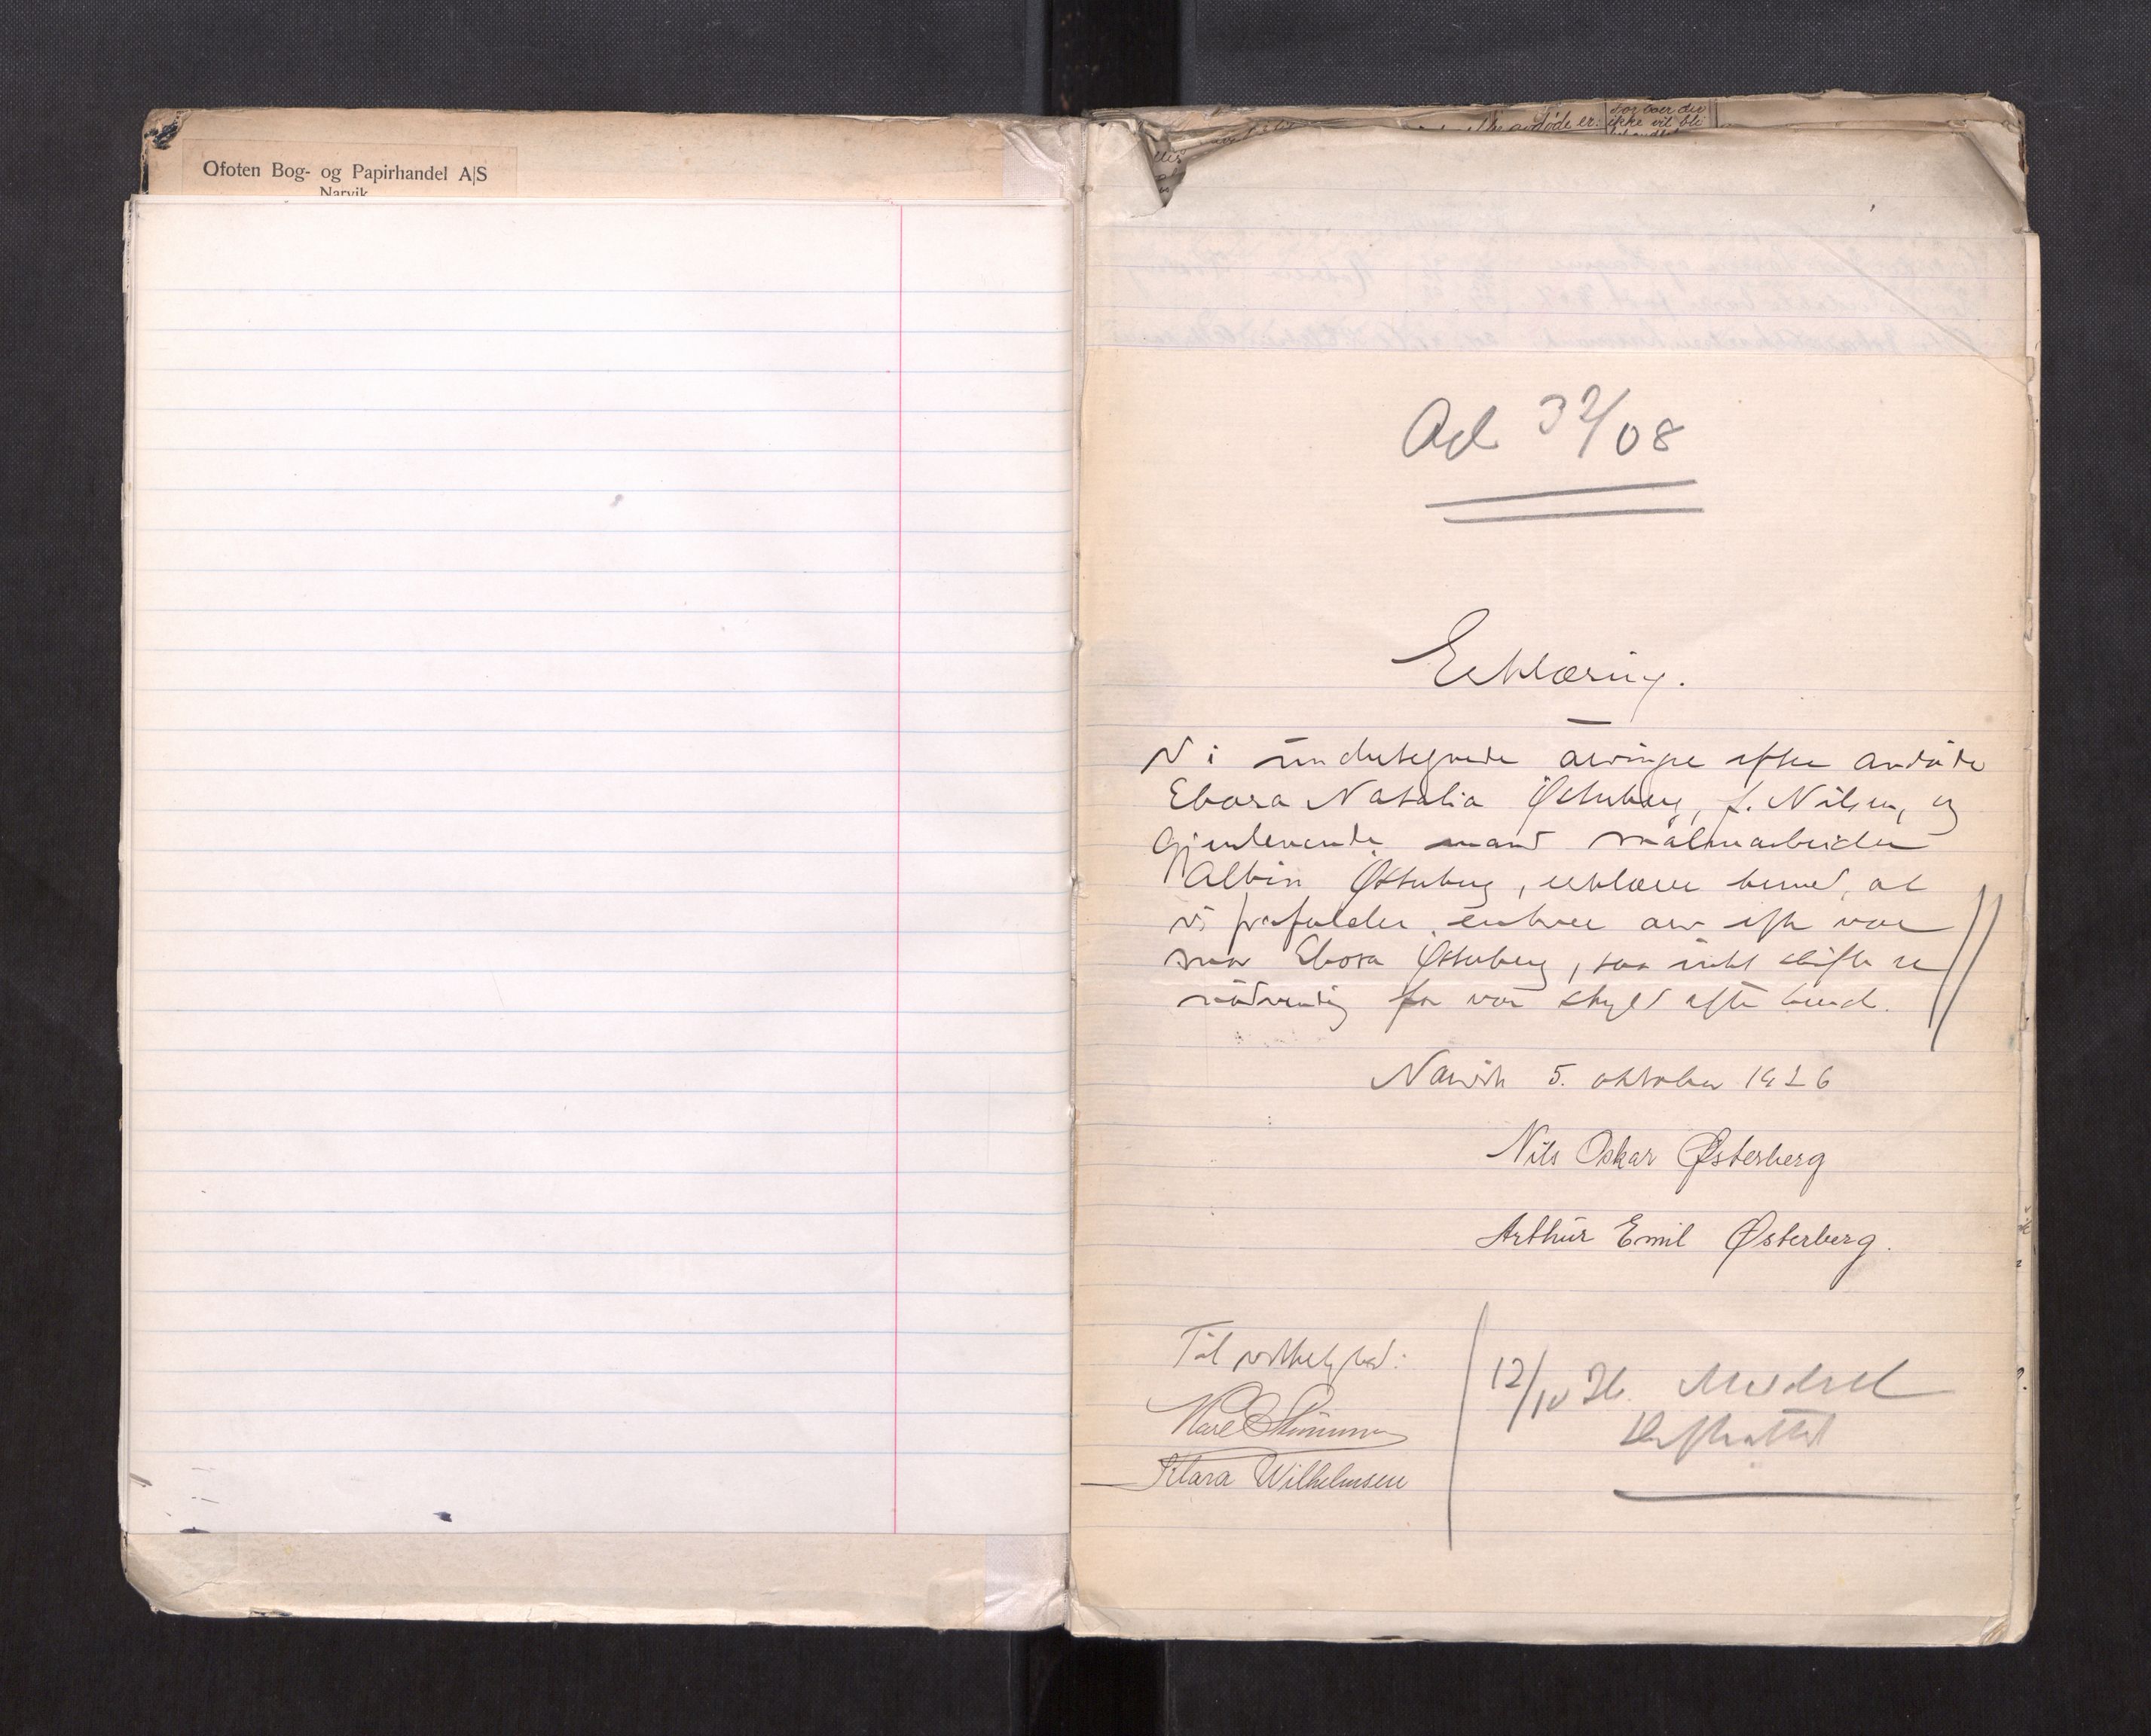 Ofoten Bog- og Papirhandel A|S
Narvik
avdøde er:
ikke vil bli
Ad 32/08
Erklæring.
Vi undertegnede arvinger efter avdøde
Ebora Natalia Østerberg, f. Nilsen, og
gjenlevende mand malmarbeider
Albin Østerberg, erklærer herved, at
vi frafalder enhver arv efter vor
mor Ebora Østerberg, saa intet skifte er
nødvendig for vor skyld efter hende.
Narvik 5. oktober 1926
Nils Oskar Østerberg
Arthur Emil Østerberg.
Til vitterlighed:
Karl
Klara Wilhelmsen
12/10 26.